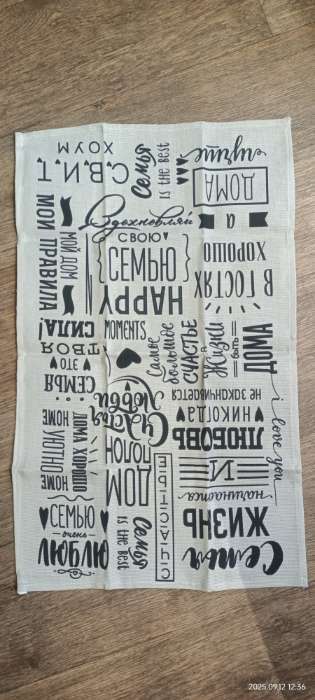 С.В.И.Т
ХОУМ
Семья
is the best
В ГОСТЯХ
ХОРОШО
а
ДОМА
лучше
МОЙ ДОМ
МОИ ПРАВИЛА
Вдохновляй
СВОЮ
СЕМЬЮ
HAPPY
MOMENTS
СЕМЬЯ
ЭТО
ТВОЯ
СИЛА!
Самое
большое
СЧАСТЬЕ
в
Жизни
быть
ДОМА
ДОМА ХОРОШО
HOME
УЮТНО
HOME
ДОМ
ПОЛОН
Счастья
Любви
Семья
ЖИЗНЬ
начинается
И
ЛЮБОВЬ
НИКОГДА
НЕ ЗАКАНЧИВАЕТСЯ
i love you
Люблю
очень
СЕМЬЮ
Семья
is the best
СЧАСТЬЕ
2025.09.12 12:36